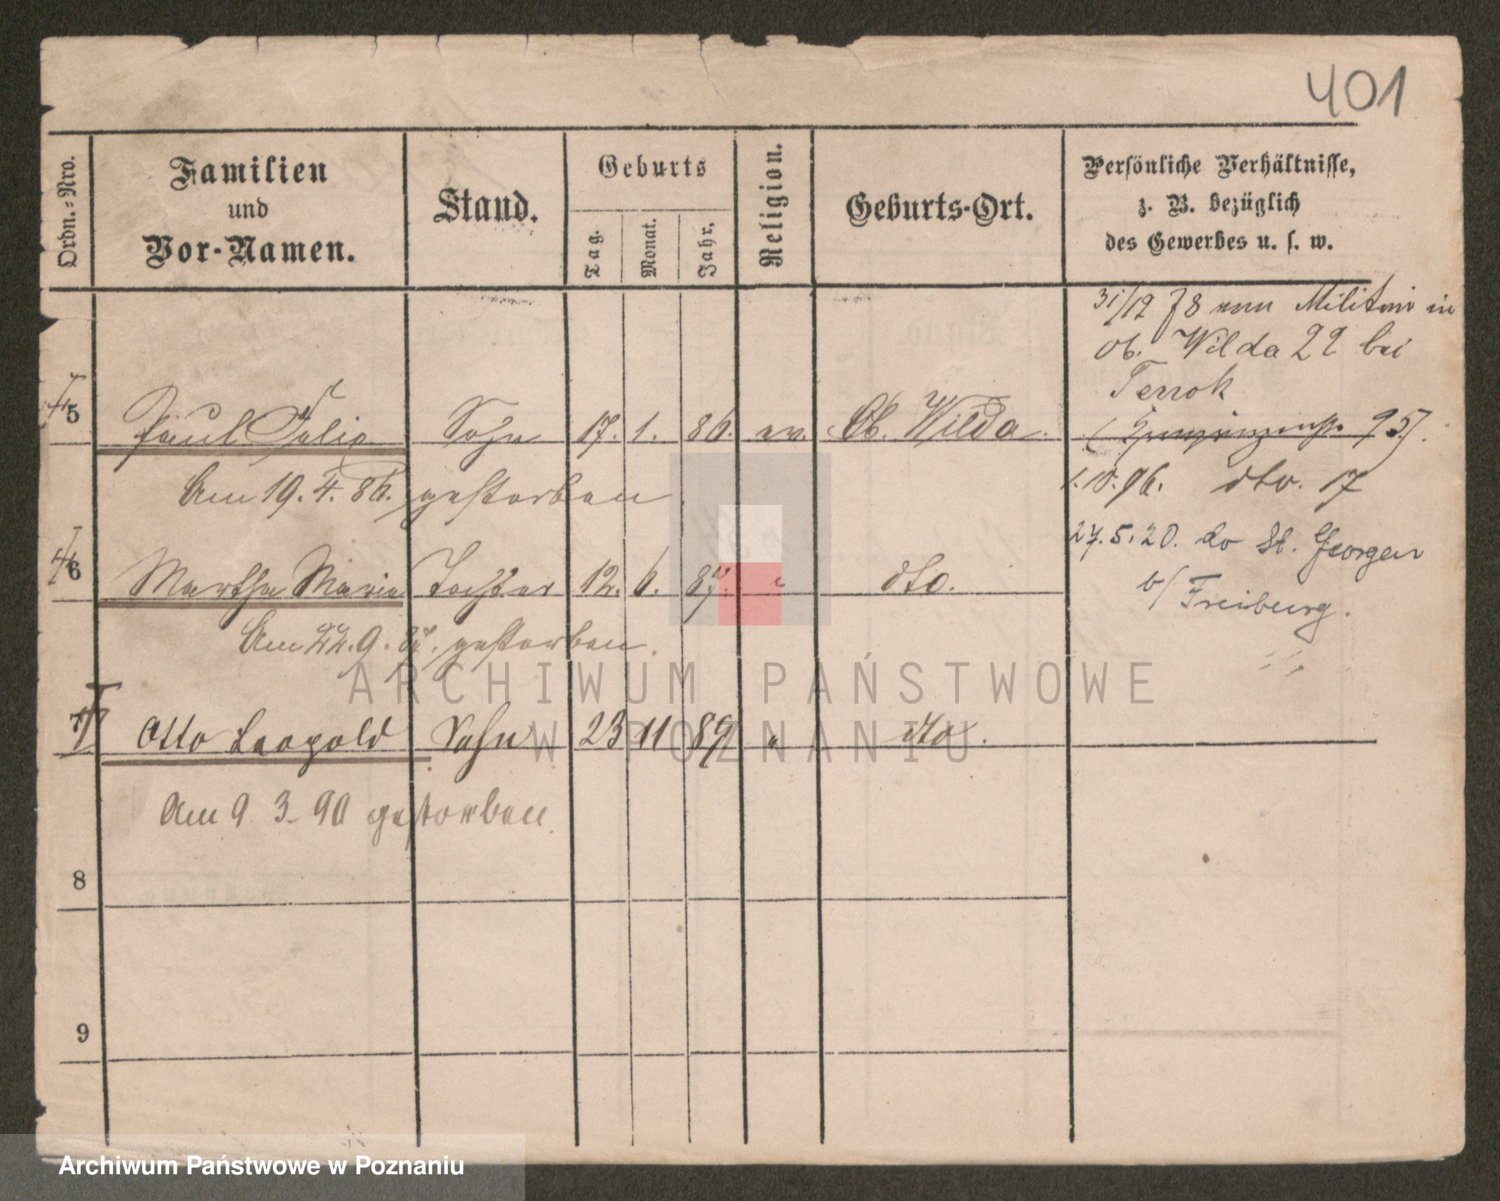 401
Ordn.-Nro.
Familien
und
Vor-Namen.
Stand.
Geburts
Tag.
Monat.
Jahr.
Religion.
Geburts-Ort.
Persönliche Verhältnisse,
z. B. bezüglich
des Gewerbes u. s. w.
31/12 78 vom Militair in
Ob. Wilda 22 bei
Terrok
5 Paul Felix Sohn 17. 1. 86. ev. Ob. Wilda. 95).
Am 19. 4. 86. gestorben.
1.10.96. dto. 17
27.5.20. do St. Georgen
b/ Freiburg.
6 Martha Marie Tochter 12. 6. 87. " dto.
Am 22. 9. 87. gestorben.
7 Otto Leopold Sohn 23 11 89 " dto.
Am 9 3. 90 gestorben.
8
9
ARCHIWUM PAŃSTWOWE
W POZNANIU
Archiwum Państwowe w Poznaniu